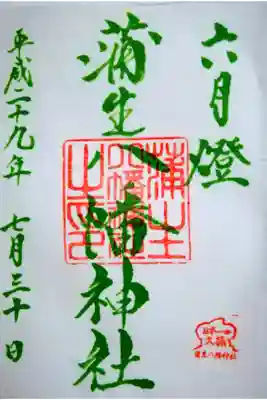 六月燈
蒲生八幡神社
平成二十九年 七月三十日
蒲生
八幡
之印
日本一
大楠
蒲生八幡神社